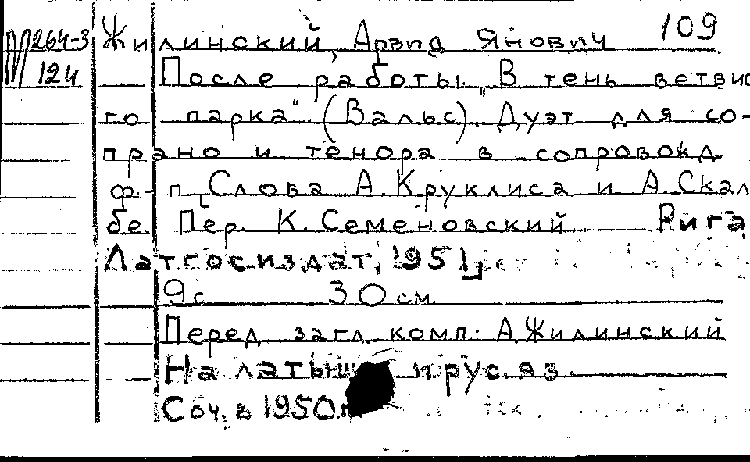 109
М264-3 Жилинский, Арвид Янович
124 После работы. „В тень ветвис
го парка" (Вальс). Дуэт для со-
прано и тенора в сопровожд
ф-п Слова А. Круклиса и А. Скал
бе. Пер. К. Семеновский Рига,
Латгосиздат, 1951
9с 30 см
Перед загл. комп: А.Жилинский
На латыш и рус. яз
Соч. в 1950